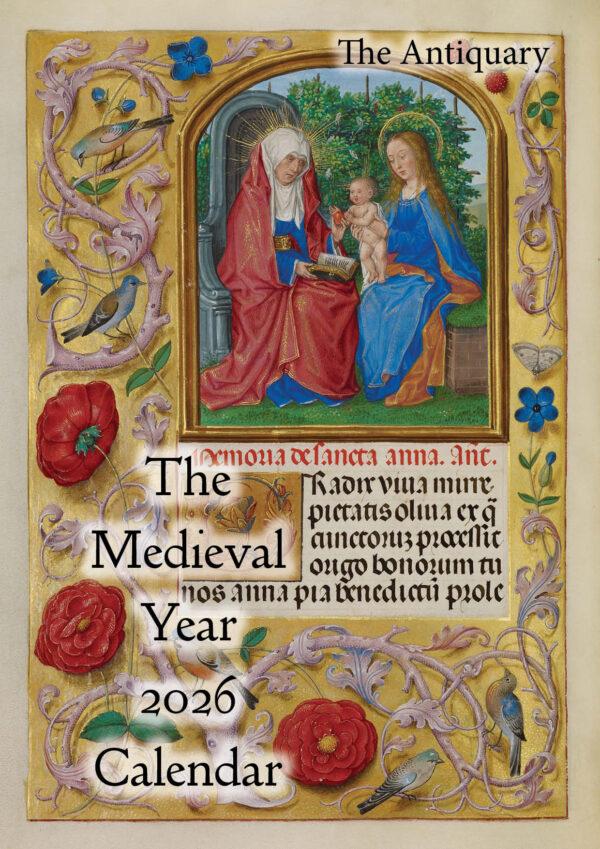 The Antiquary
Memoria de sancta anna. Añt.
Radix viva mirre,
pietatis oliua ex q̃
cunctoruz processit
origo bonorum tu
nos anna pia benedictũ prole
The
Medieval
Year
2026
Calendar